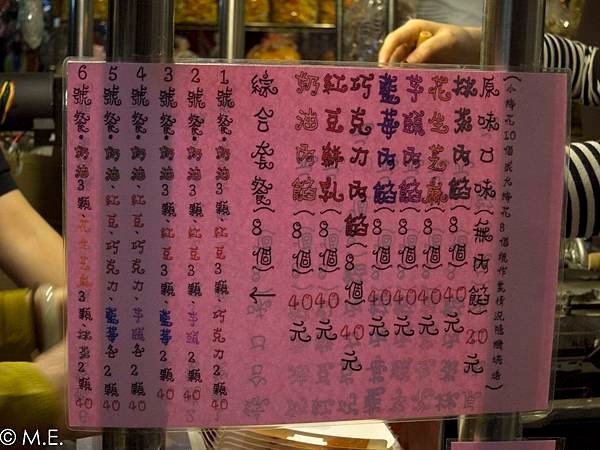 10個 8個視作業情況隨機
原味口味(無內餡)20元
抹茶內餡(8個)40元
花生芝麻(8個)40元
芋頭內餡(8個)40元
藍莓內餡(8個)40元
巧克力內餡(8個)40元
紅豆鮮乳(8個)40元
奶油內餡(8個)40元
綜合套餐(8個)←
1號餐:奶油3顆、紅豆3顆、巧克力2顆40
2號餐:奶油3顆、紅豆3顆、芋頭2顆40
3號餐:奶油3顆、紅豆3顆、藍莓2顆40
4號餐:奶油、紅豆巧克力、芋頭各2顆40
5號餐:奶油、紅豆巧克力、藍莓各2顆40
6號餐:奶油3顆、花生芝麻3顆、抹茶2顆40
© M.E.